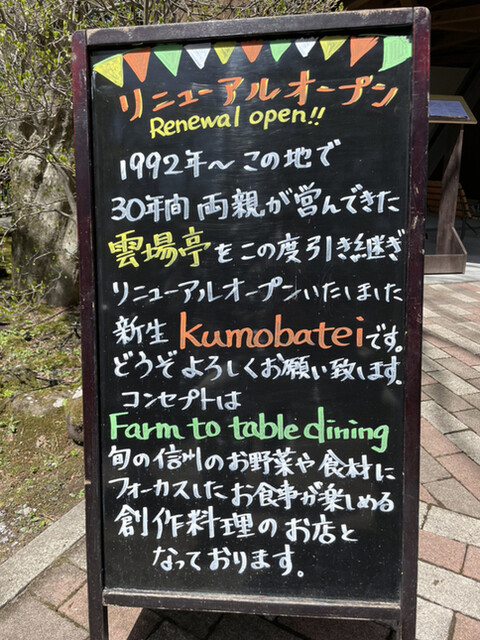 リニューアルオープン
Renewal open!!
1992年〜この地で
30年間両親が営んできた
雲場亭をこの度引き継ぎ
リニューアルオープンいたしました
新生 kumobateiです。
どうぞよろしくお願い致します。
コンセプトは
Farm to table dining
旬の信州のお野菜や食材に
フォーカスしたお食事が楽しめる
創作料理のお店と
なっております。